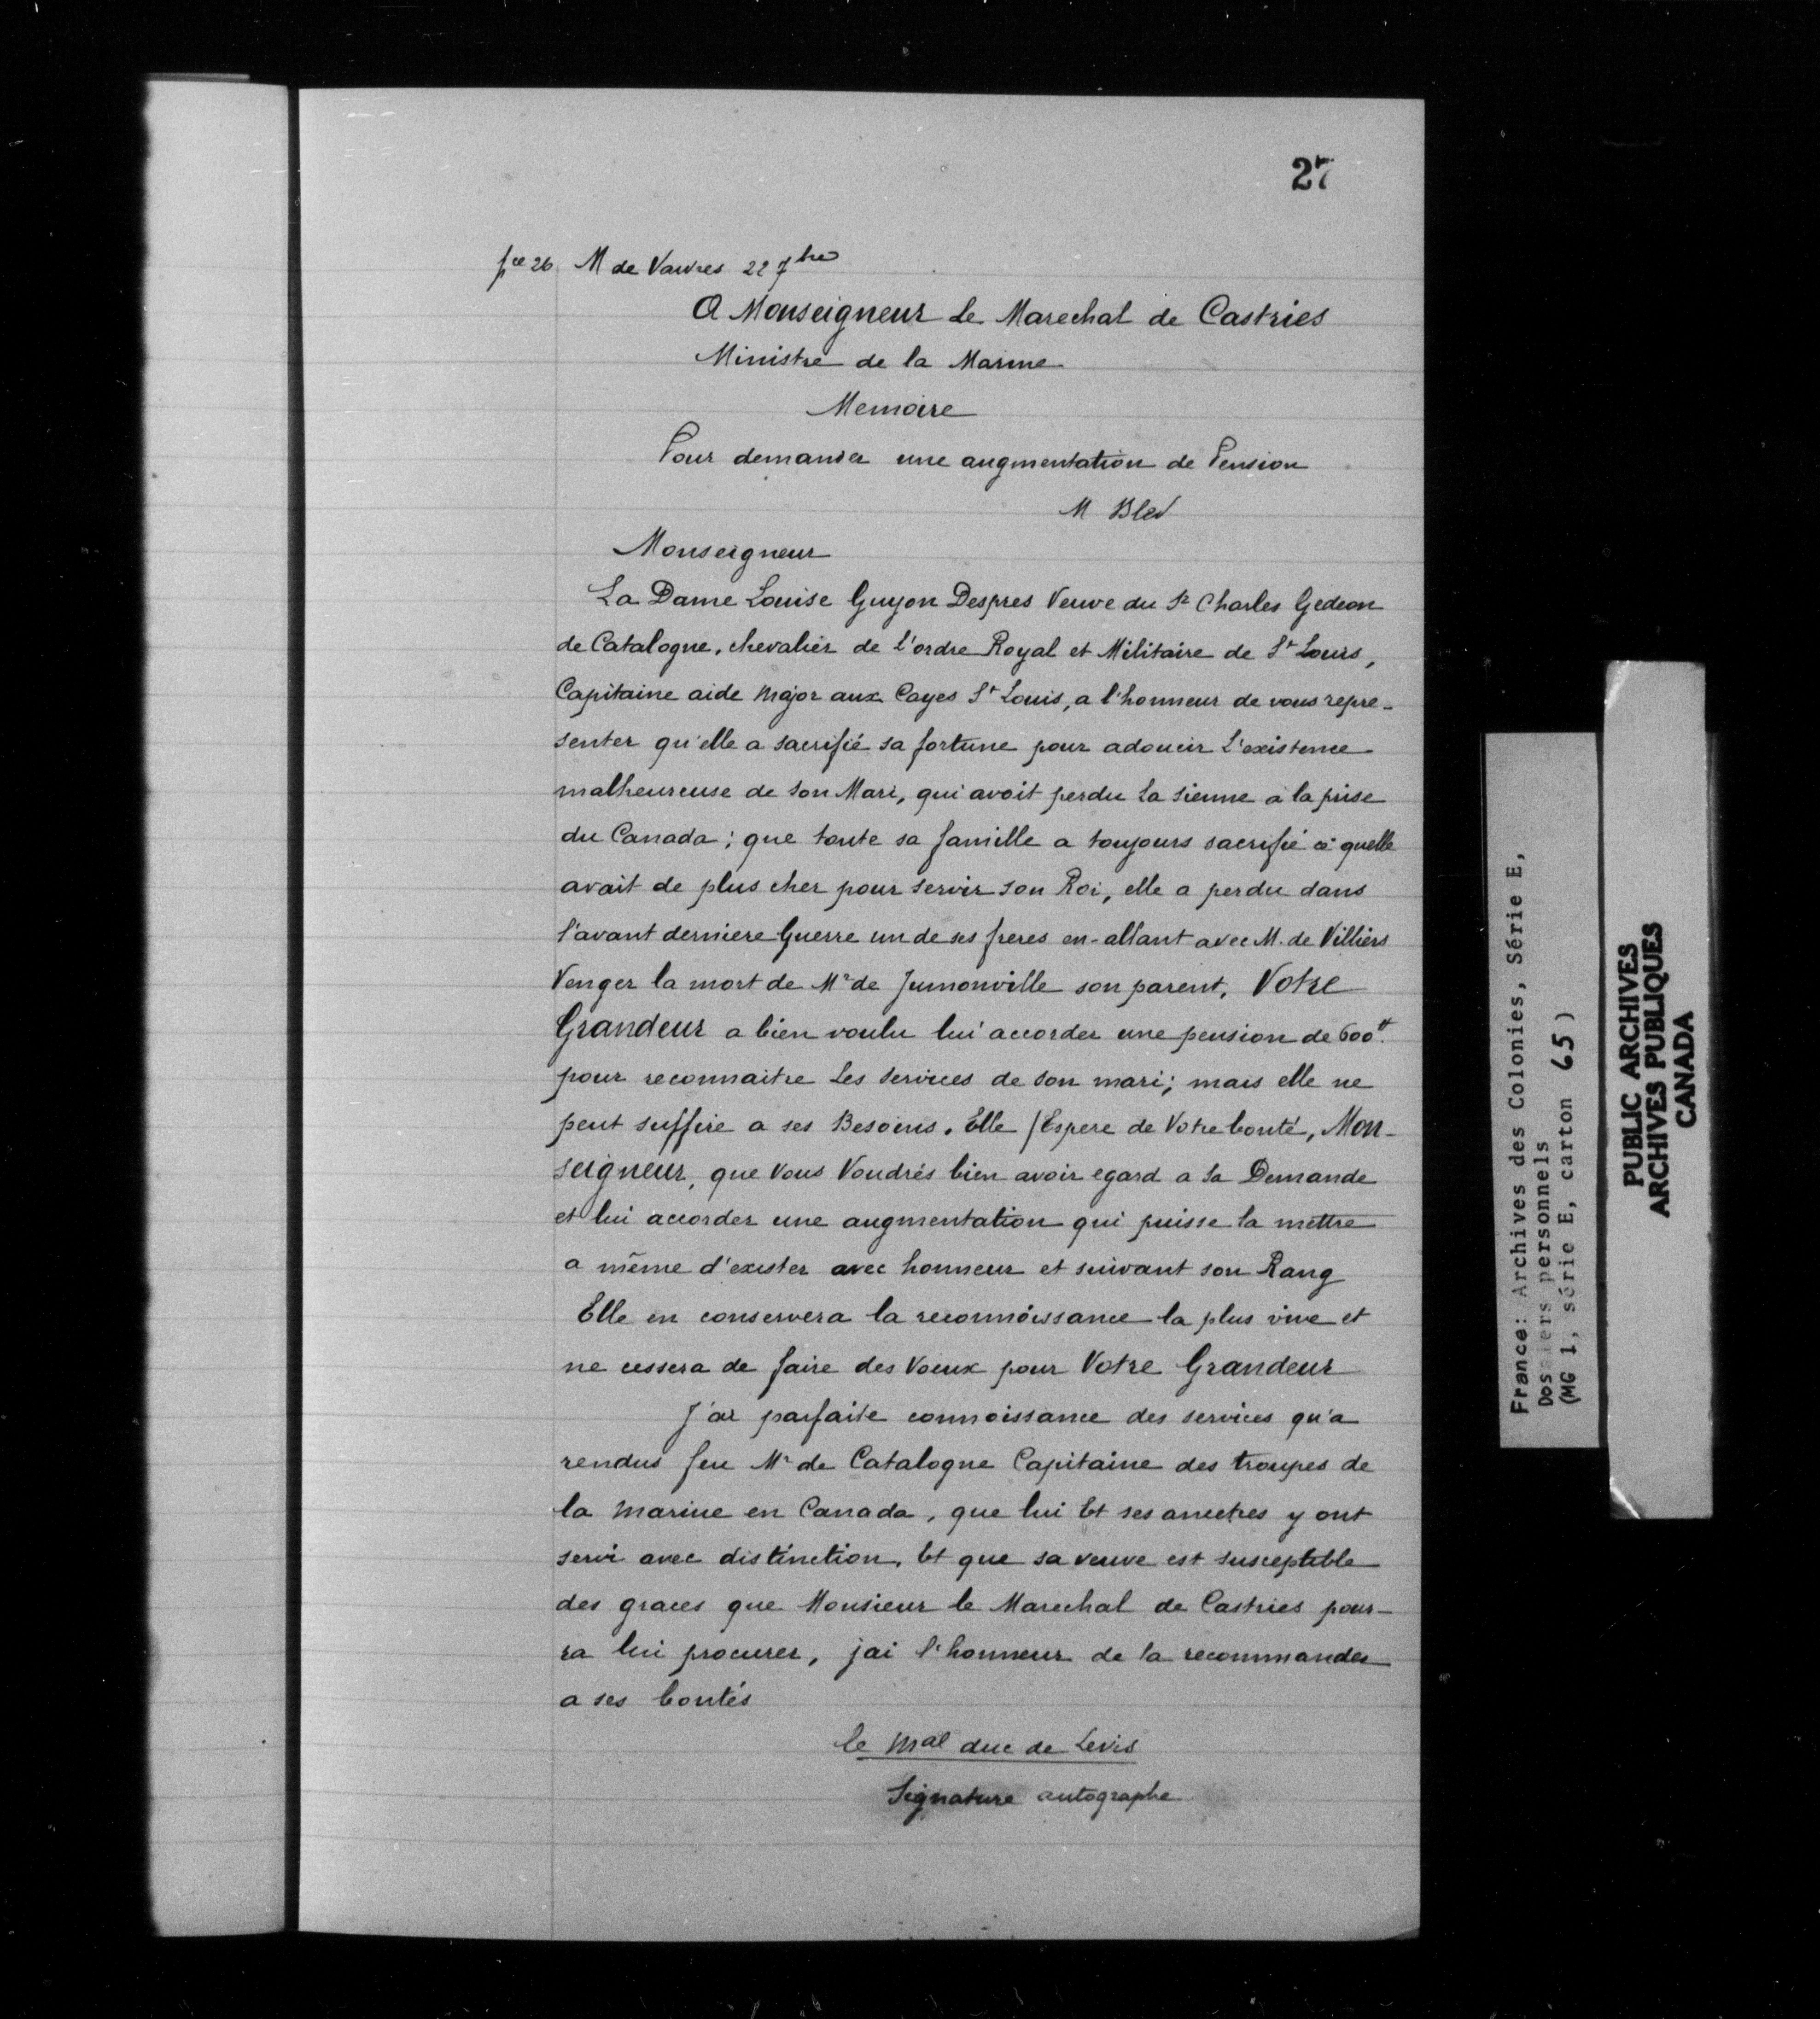 27
pce 26 M de Vaivres 22 7bre
A Monseigneur Le Marechal de Castries
Ministre de la Marine
Memoire
Pour demander une augmentation de Pension
M Bled
Monseigneur
La Dame Louise Guyon Despres Veuve du Sr Charles Gedeon
de Catalogne, chevalier de l'ordre Royal et Militaire de St Louis,
Capitaine aide Major aux Cayes St Louis, a l'honneur de vous repre-
senter qu'elle a sacrifié sa fortune pour adoucir L'existence
malheureuse de son Mari, qui avoit perdu La sienne à la prise
du Canada ; que toute sa famille a toujours sacrifié ce quelle
avait de plus cher pour servir son Roi, elle a perdu dans
l'avant derniere Guerre un de ses freres en-allant avec M. de Villiers
Venger la mort de Mr de Jumonville son parent, Votre
Grandeur a bien voulu lui accorder une pension de 600#.
pour reconnaitre Les services de son mari; mais elle ne
peut suffire a ses Besoins. Elle /Espere de Votre bonté, Mon-
seigneur, que Vous Voudrés bien avoir egard a Sa Demande
et lui accorder une augmentation qui puisse la mettre
a même d'exister avec honneur et suivant son Rang
Elle en conservera la reconnoissance la plus vive et
ne cessera de faire des Voeux pour Votre Grandeur
J'ai parfaite connoissance des services qu'a
rendus feu Mr de Catalogne Capitaine des troupes de
la Marine en Canada, que lui Et ses ancetres y ont
servi avec distinction, Et que sa veuve est susceptible
des graces que Monsieur le Marechal de Castries pour-
ra lui procurer, jai l'honneur de la recommander
a ses bontés
le Mal duc de Levis
Signature autographe
France: Archives des Colonies, Série E,
Dossiers personnels
(MG 1, série E, carton 65)
PUBLIC ARCHIVES
ARCHIVES PUBLIQUES
CANADA